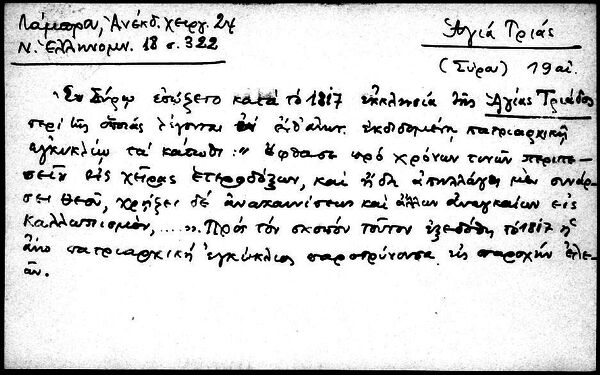 Λάμπρου, Ἀνέκδ. χειρ. 24
Ν. Ἑλληνομν. 18 σ. 322
Ἁγιά Τριάς
(Σύρα) 19 αἰ.
Ἐν Σύρῳ ἐσώζετο κατὰ τὸ 1817 ἐκκλησία τῆς Ἁγίας Τριάδος
περὶ τῆς ὁποίας λέγονται ἐν ἐκδιδομένῃ πατριαρχικῇ
ἐγκυκλίῳ τὰ κάτωθι: " ἔφθασε πρὸ χρόνων τινῶν περιπε-
σεῖν εἰς χεῖρας ἑτεροδόξων, καὶ ἤδη ἀπηλλάγη μὲν συνάρ-
σει θεοῦ, χρῄζει δὲ ἀνακαινίσεως καὶ ἄλλων ἀναγκαίων εἰς
καλλωπισμόν, ....". Πρὸς τὸν σκοπὸν τοῦτον ἐξεδόθη τὸ 1817 ἡ
ἄνω πατριαρχικὴ ἐγκύκλιος παροτρύνουσα εἰς παροχὴν ἐλε-
ῶν.